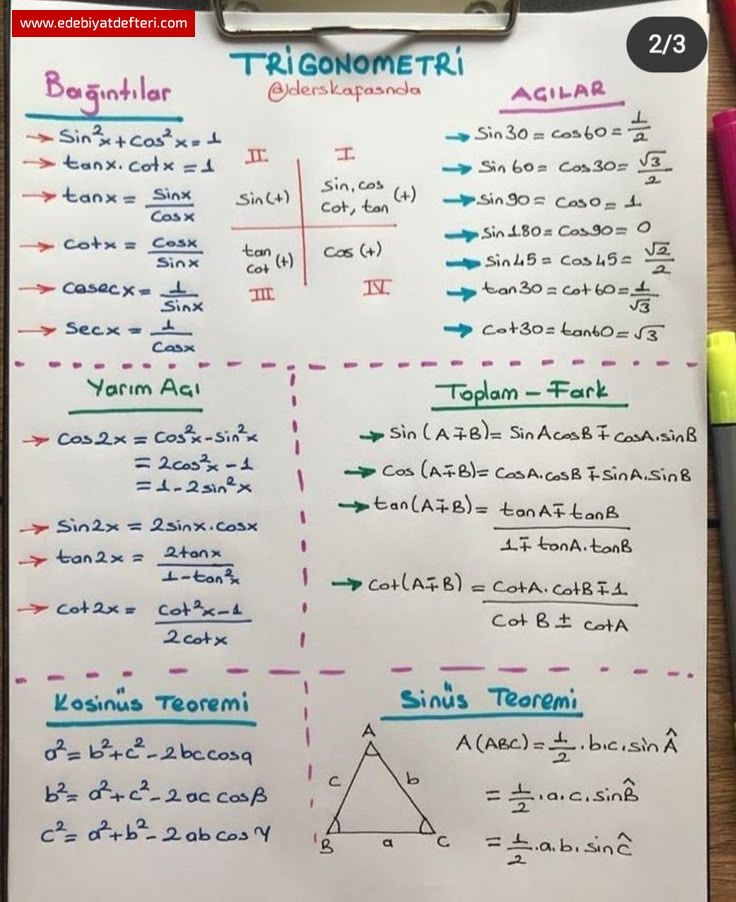 www.edebiyatdefteri.com
2/3
TRİGONOMETRİ
@derskafasnda
Bağıntılar
→ Sin²x + Cos²x = 1
→ tanx . cotx = 1
→ tanx = Sinx / Cosx
→ Cotx = Cosx / Sinx
→ Cosecx = 1 / Sinx
→ Secx = 1 / Cosx
II I
Sin (+) Sin, cos (+)
Cot, tan
tan (+) Cos (+)
cot
III IV
AÇILAR
→ Sin30 = cos60 = 1/2
→ Sin 60 = Cos30 = √3/2
→ Sin90 = Cos0 = 1
→ Sin180 = Cos90 = 0
→ Sin45 = Cos45 = √2/2
→ tan30 = cot60 = 1/√3
→ Cot30 = tan60 = √3
Yarım Açı
→ Cos2x = Cos²x - Sin²x
= 2cos²x - 1
= 1 - 2sin²x
→ Sin2x = 2sinx.cosx
→ tan2x = 2tanx / 1 - tan²x
→ Cot2x = Cot²x - 1 / 2cotx
Toplam - Fark
→ Sin (A∓B) = SinAcosB ∓ cosA.sinB
→ Cos (A∓B) = CosA.cosB ∓ SinA.SinB
→ tan(A∓B) = tanA ∓ tanB / 1 ∓ tanA.tanB
→ Cot(A∓B) = CotA.cotB ∓ 1 / Cot B ± cotA
Kosinüs Teoremi
a² = b² + c² - 2bc cosα
b² = a² + c² - 2ac cosβ
c² = a² + b² - 2ab cosγ
Sinüs Teoremi
A
c b
B a C
A(ABC) = 1/2 . b.c.sin Â
= 1/2 . a.c.sin B̂
= 1/2 . a.b.sin Ĉ